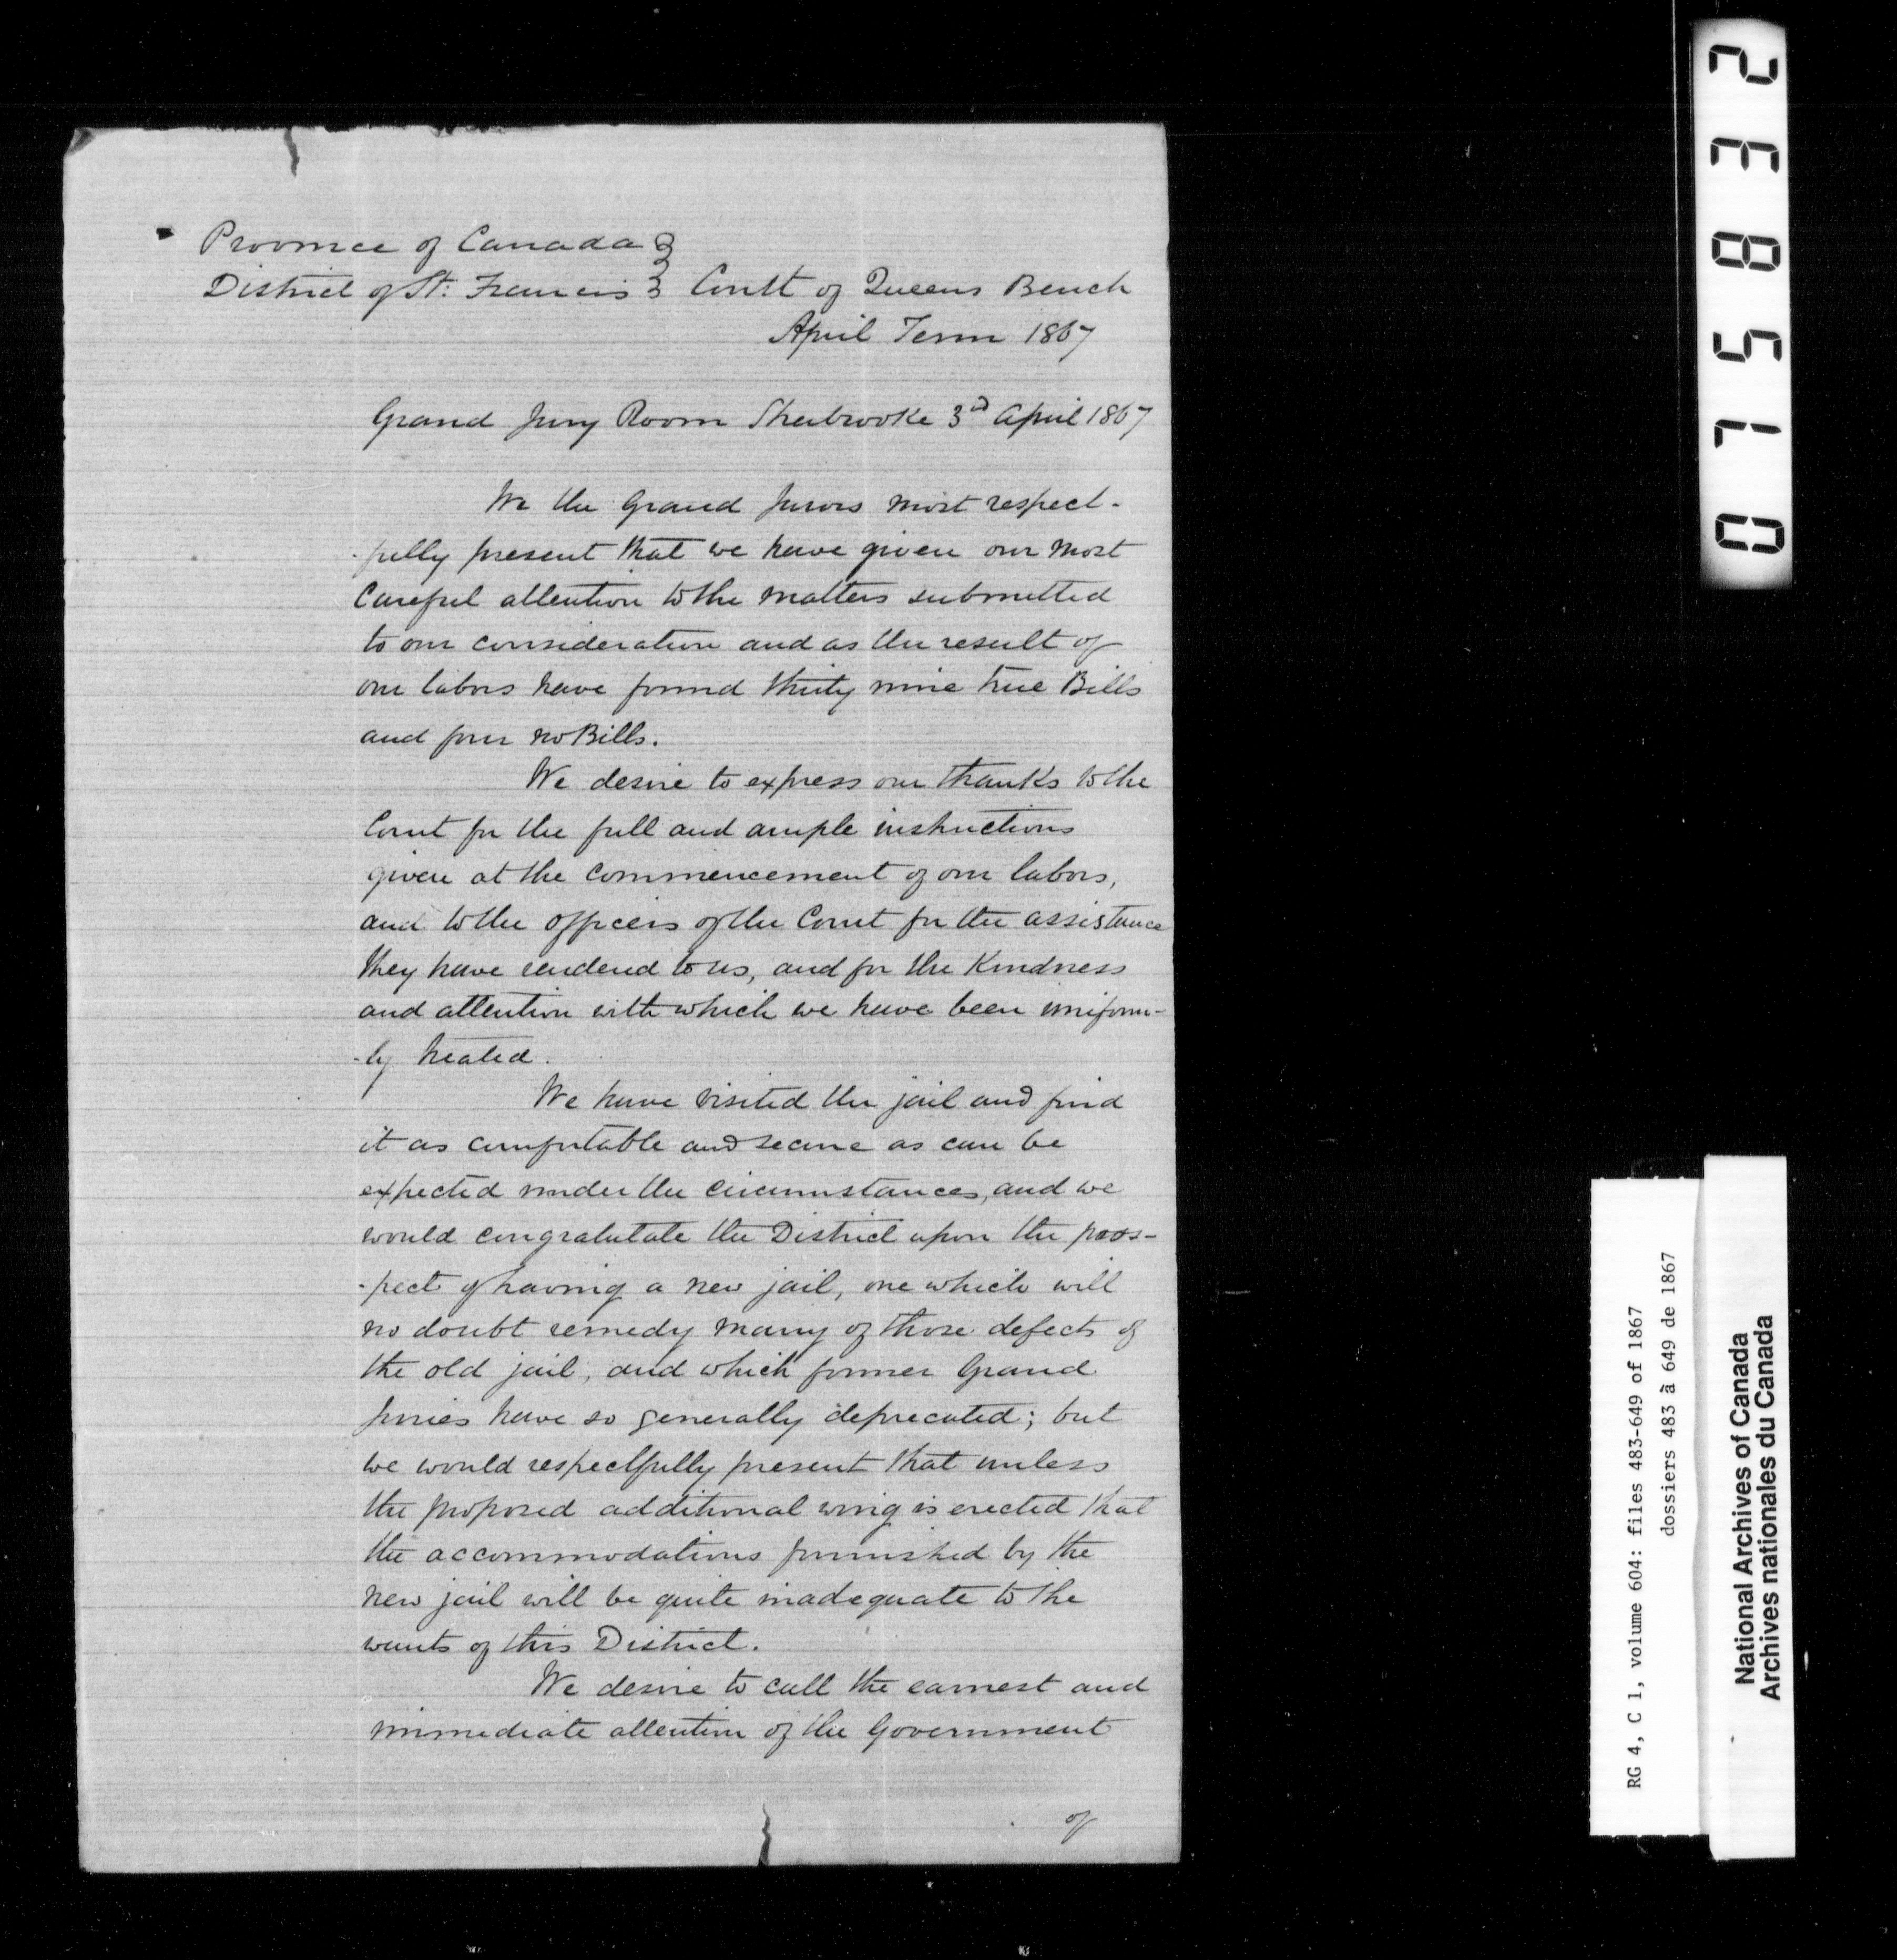 Province of Canada
District of St. Francis Court of Queens Bench
April Term 1867
Grand Jury Room Sherbrooke 3rd April 1867
We the Grand Jurors most respect-
-fully present that we have given our most
careful attention to the matters submitted
to our consideration and as the result of
our labors have found thirty nine true Bills
and four no Bills.
We desire to express our thanks to the
Court for the full and ample instructions
given at the commencement of our labors,
and to the officers of the Court for the assistance
they have rendered to us, and for the kindness
and attention with which we have been uniform-
-ly treated.
We have visited the jail and find
it as comfortable and secure as can be
expected under the circumstances, and we
would congratulate the District upon the pros-
-pect of having a new jail, one which will
no doubt remedy many of those defects of
the old jail, and which former Grand
Juries have so generally deprecated; but
we would respectfully present that unless
the proposed additional wing is erected that
the accommodations furnished by the
new jail will be quite inadequate to the
wants of this District.
We desire to call the earnest and
immediate attention of the Government
of
015832
RG 4, C 1, volume 604: files 483-649 of 1867
dossiers 483 à 649 de 1867
National Archives of Canada
Archives nationales du Canada